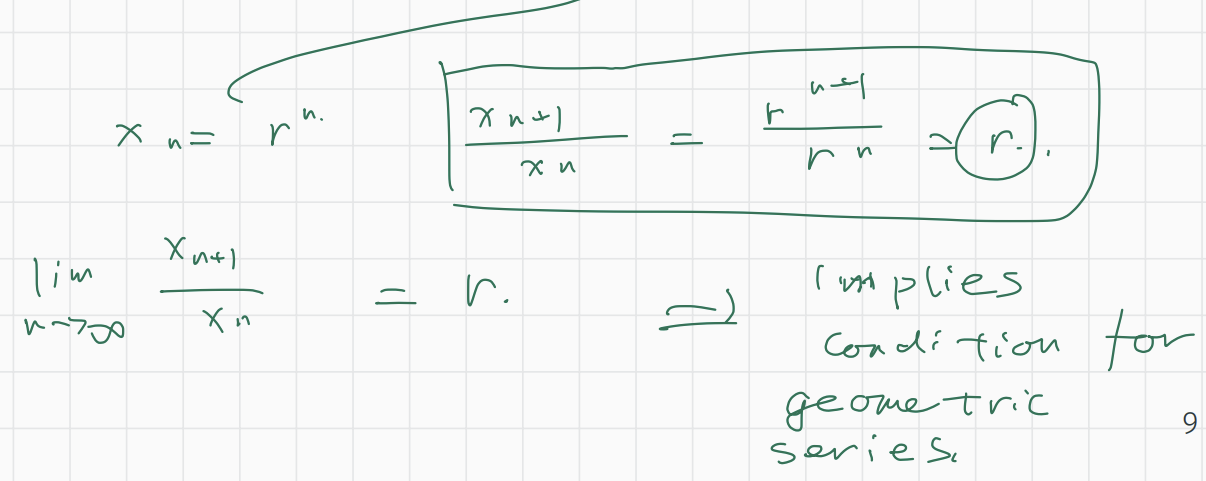 x_n = r^n. x_{n+1}/x_n = r^{n+1}/r^n = r.
lim_{n→∞} x_{n+1}/x_n = r. ⇒ implies
condition for
geometric
series.
9